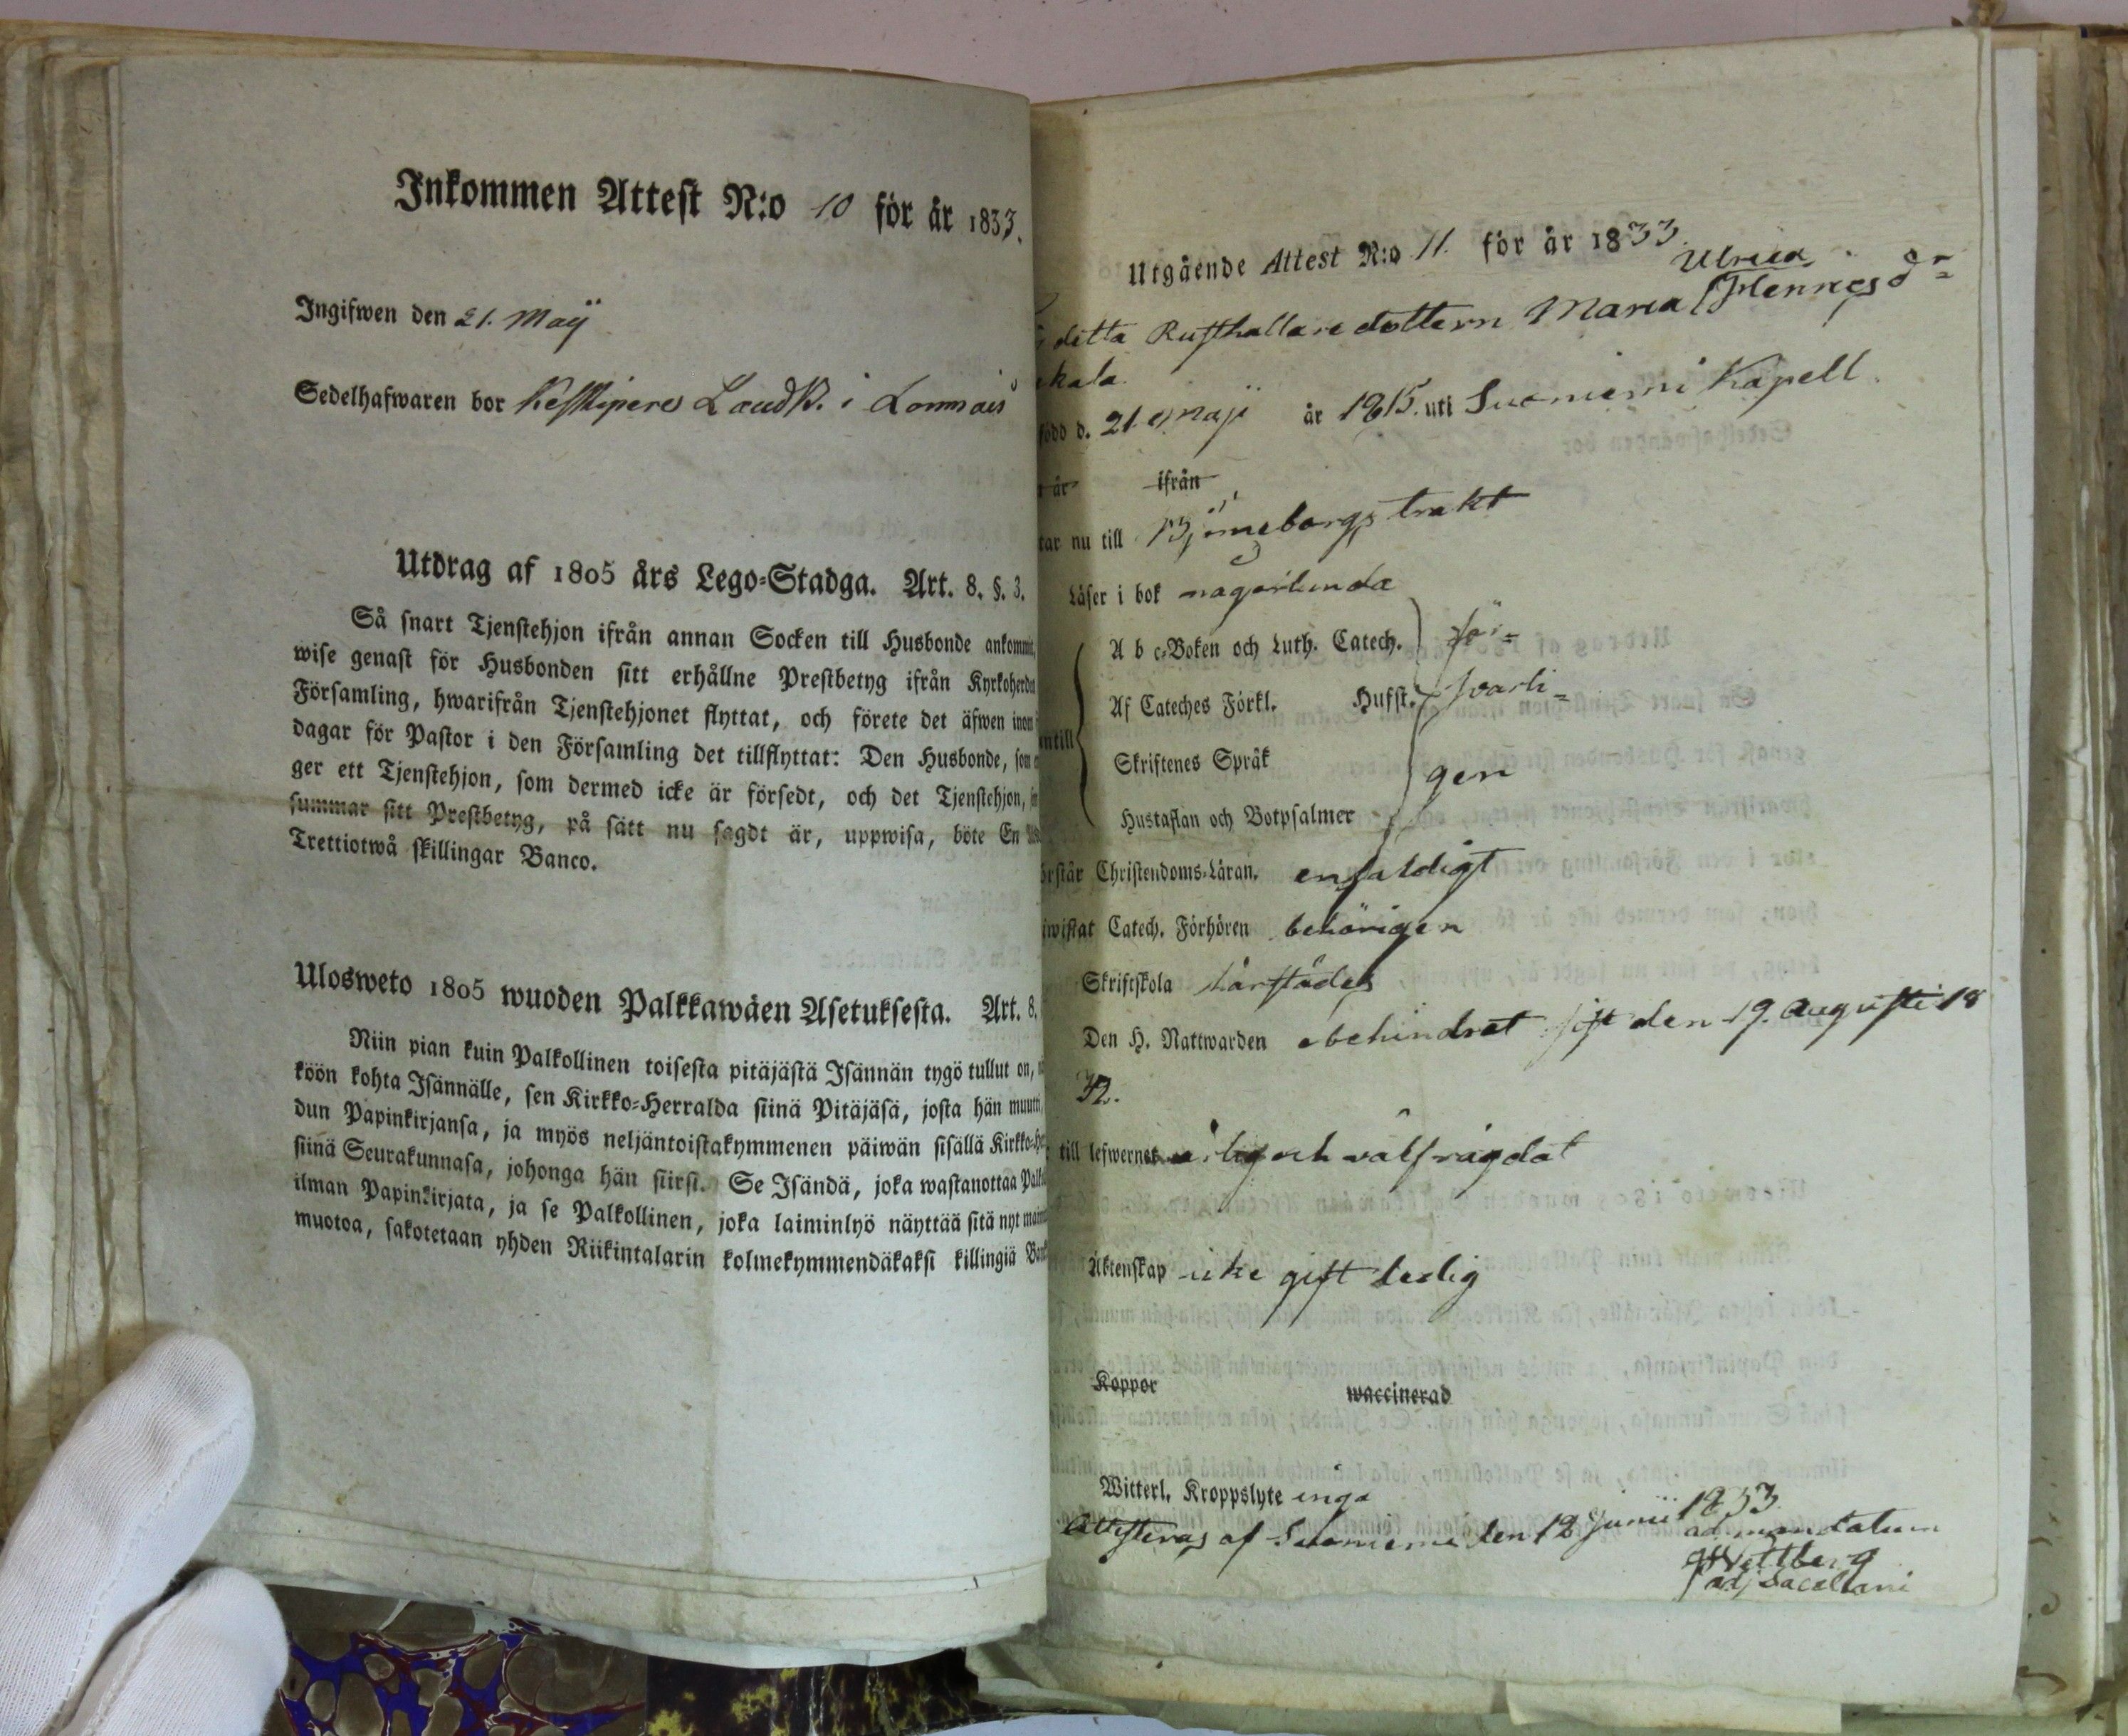 Inkommen Attest N:o 10 för år 1833.
Ingifwen den 21. Maÿ
Sedelhafwaren bor
Utdrag af 1805 års Lego-Stadga. Art. 8. §. 3.
Så snart Tjenstehjon ifrån annan Socken till Husbonde ankommit,
wise genast för Husbonden sitt erhållne Prestbetyg ifrån Kyrkoherden
Församling, hwarifrån Tjenstehjonet flyttat, och förete det äfwen inom
dagar för Pastor i den Församling det tillflyttat: Den Husbonde, som
ger ett Tjenstehjon, som dermed icke är försedt, och det Tjenstehjon,
summar sitt Prestbetyg, på sätt nu sagdt är, uppwisa, böte En
Trettiotwå skillingar Banco.
Ulosweto 1805 wuoden Palkkawäen Asetuksesta. Art. 8.
Niin pian kuin Palkollinen toisesta pitäjästä Isännän tygö tullut on,
köön kohta Isännälle, sen Kirkko-Herralda siinä Pitäjäsä, josta hän muutti,
dun Papinkirjansa, ja myös neljäntoistakymmenen päiwän sisällä Kirkko-Her
siinä Seurakunnasa, johonga hän siirsi. Se Isändä, joka wastanottaa Palko
ilman Papinkirjata, ja se Palkollinen, joka laiminlyö näyttää sitä nyt
muotoa, sakotetaan yhden Riikintalarin kolmekymmendäkaksi killingiä
Utgående Attest N:o 11. för år 1833.
Ulrica
detta Rusthållare dottern Maria Hennesdr
kala
född d. 21 Maji år 1815. uti Suoniemi Kapell.
år ifrån
tar nu till Björneborgs trakt
Läser i bok någorlunda
A b c-Boken och Luth. Catech. för-
Af Cateches Förkl. Husst. svarli-
ntill
Skriftenes Språk gen
Hustaflan och Botpsalmer
örstår Christendoms-Läran. enfaldigt
iwistat Catech. Förhören behörigen
Skriftskola härstädes
Den H. Nattwarden obehindrat sist den 19. Augusti 18
32.
till lefwernet ärlig och välfrägdat
Äktenskap icke gift ledig
Koppor waccinerad
Witterl. Kroppslyte inga
Attesteras af Suoniemi den 12 Junii 1833.
ad mandatum
Wettberg
adj Sacellani